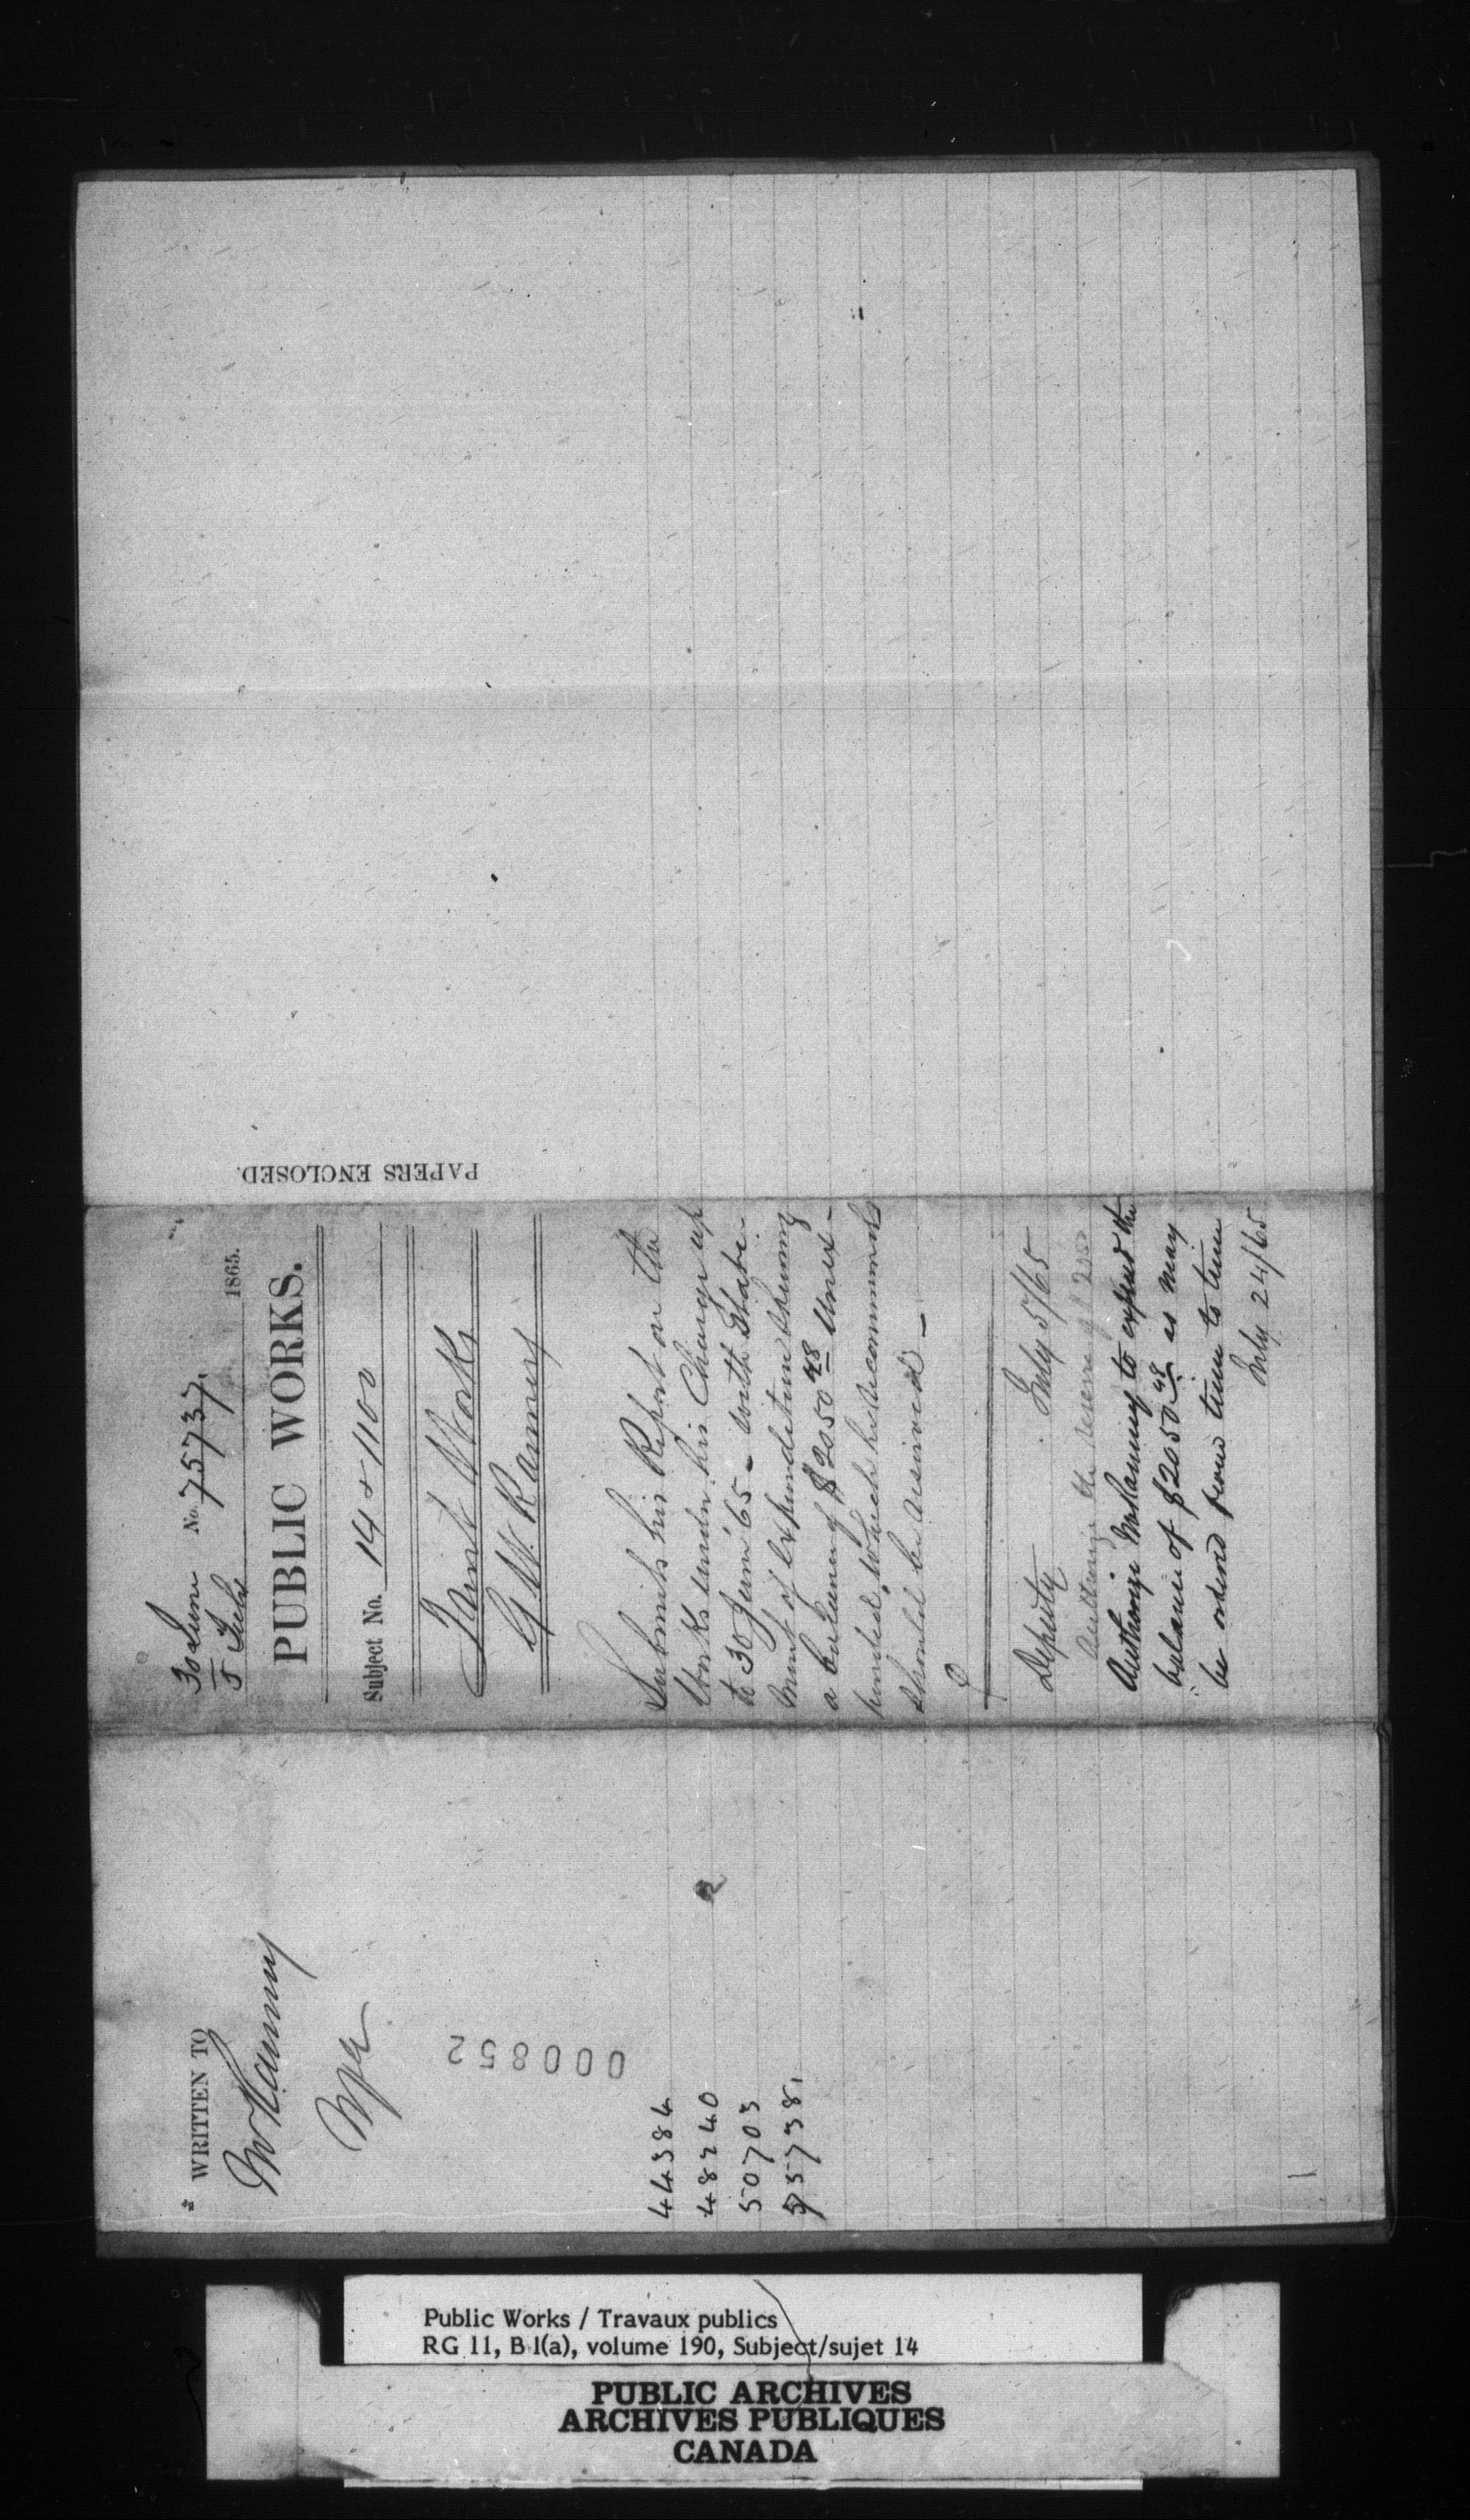 30 June
5 July
No. 75737.
1865.
PUBLIC WORKS.
Subject No. 14 & 1100
Works
G W. Ranney
Submits his Report on the
Works under his Charge up
to 30 June '65 – with State-
ment of Expenditure shewing
a balance of $2050 48 Unex-
pended, which he recommends
should be
Deputy July 5/65
Authorize the
Authorize Mr Ranney to expend the
balance of $2050 48 as may
be ordered from time to time
July 24/65
PAPERS ENCLOSED.
WRITTEN TO
Mr Ranney
000852
44384
48240
50703
55738
Public Works / Travaux publics
RG 11, B 1(a), volume 190, Subject/sujet 14
PUBLIC ARCHIVES
ARCHIVES PUBLIQUES
CANADA